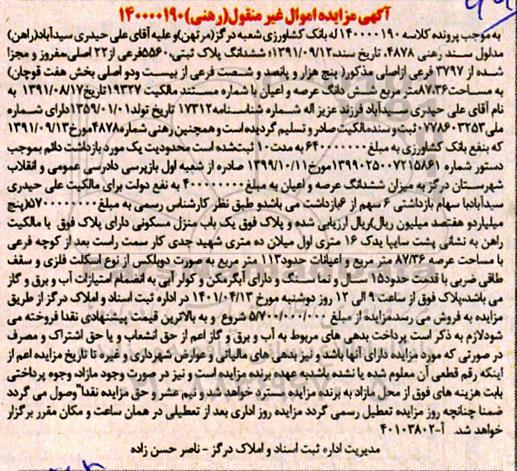 آگهی مزایده اموال غیر منقول(رهنی)۱۴۰۰۰۰۱۹۰
به موجب پرونده کلاسه ۱۴۰۰۰۰۱۹۰ له بانک کشاورزی شعبه درگز(مرتهن)و علیه آقای علی حیدری سیدآباد(راهن)
مدلول سند رهنی ۴۸۷۸، تاریخ سند:۱۳۹۱/۰۹/۱۲؛ ششدانگ پلاک ثبتی۵۵۶۰فرعی از۲۲ اصلی،مفروز و مجزا
شده از ۳۷۹۷ فرعی ازاصلی مذکور( پنج هزار و پانصد و شصت فرعی از بیست ودو اصلی بخش هفت قوچان)
به مساحت۸۷٫۳۶متر مربع شش دانگ عرصه و اعیان با شماره مستند مالکیت ۱۹۳۲۷تاریخ۱۳۹۱/۰۸/۱۷ به
نام آقای علی حیدری سیدآباد فرزند عزیز اله شماره شناسنامه۱۷۳۱۲ تاریخ تولد۱۳۵۹/۰۱/۰۱ دارای شماره
ملی۰۷۷۸۶۰۳۲۵۳ثبت و سندمالکیت صادر و تسلیم گردیده است و همچنین رهنی شماره۴۸۷۸مورخ۱۳۹۱/۰۹/۱۳
که بنفع بانک کشاورزی به مبلغ۶۴۰۰۰۰۰۰۰ به مدت ۱۰ ثبت شده است محدودیت یک مورد بازداشت دائم بموجب
دستور شماره ۱۳۹۹۰۲۵۰۰۷۲۱۵۸۶۱مورخ۱۳۹۹/۱۰/۱۱ صادره از شعبه اول بازپرسی دادرسی عمومی و انقلاب
شهرستان درگز به میزان ششدانگ عرصه و اعیان به مبلغ۴۰۰۰۰۰۰۰۰ به نفع دولت برای مالکیت علی حیدری
سیدآبادبا سهام بازداشتی ۶ سهم از ۶بازداشت می باشدو طبق نظر کارشناس رسمی به مبلغ۵۷۰۰۰۰۰۰۰۰(پنج
میلیاردو هفتصد میلیون ریال)ریال ارزیابی شده و پلاک فوق یک باب منزل مسکونی دارای پلاک فوق با مالکیت
راهن به نشانی پشت سایپا یدک ۱۶ متری اول میلان ده متری شهید جدی کار سمت راست بعد از کوچه فرعی
با مساحت عرصه ۸۷/۳۶ متر مربع و اعیانات حدود۱۱۳ متر مربع به صورت دوبلکس از نوع اسکلت فلزی و سقف
طاقی ضربی با قدمت حدود۱۵ سال و نما سنگ و دارای آبگرمکن و کولر آبی به انضمام امتیازات آب و برق و گاز
می باشد،پلاک فوق از ساعت ۹ الی ۱۲ روز دوشنبه مورخ ۱۴۰۱/۰۴/۱۳ در اداره ثبت اسناد و املاک درگز از طریق
مزایده به فروش می رسد،مزایده از مبلغ ۵/۷۰۰/۰۰۰/۰۰۰ شروع و به بالاترین قیمت پیشنهادی نقدا فروخته می
شودلازم به ذکر است پرداخت بدهی های مربوط به آب و برق و گاز اعم از حق انشعاب و یا حق اشتراک و مصرف
در صورتی که مورد مزایده دارای آنها باشد و نیز بدهی های مالیاتی و عوارض شهرداری و غیره تا تاریخ مزایده اعم از
اینکه رقم قطعی آن معلوم شده یا نشده باشدبه عهده برنده مزایده است و نیز در صورت وجود مازاد، وجوه پرداختی
بابت هزینه های فوق از محل مازاد به برنده مزایده مسترد خواهد شد و نیم عشر و حق مزایده نقدا"وصول می گردد
ضمنا چنانچه روز مزایده تعطیل رسمی گردد مزایده روز اداری بعد از تعطیلی در همان ساعت و مکان مقرر برگزار
خواهد شد. آ-۴۰۱۰۳۸۰۲
مدیریت اداره ثبت اسناد و املاک درگز - ناصر حسن زاده